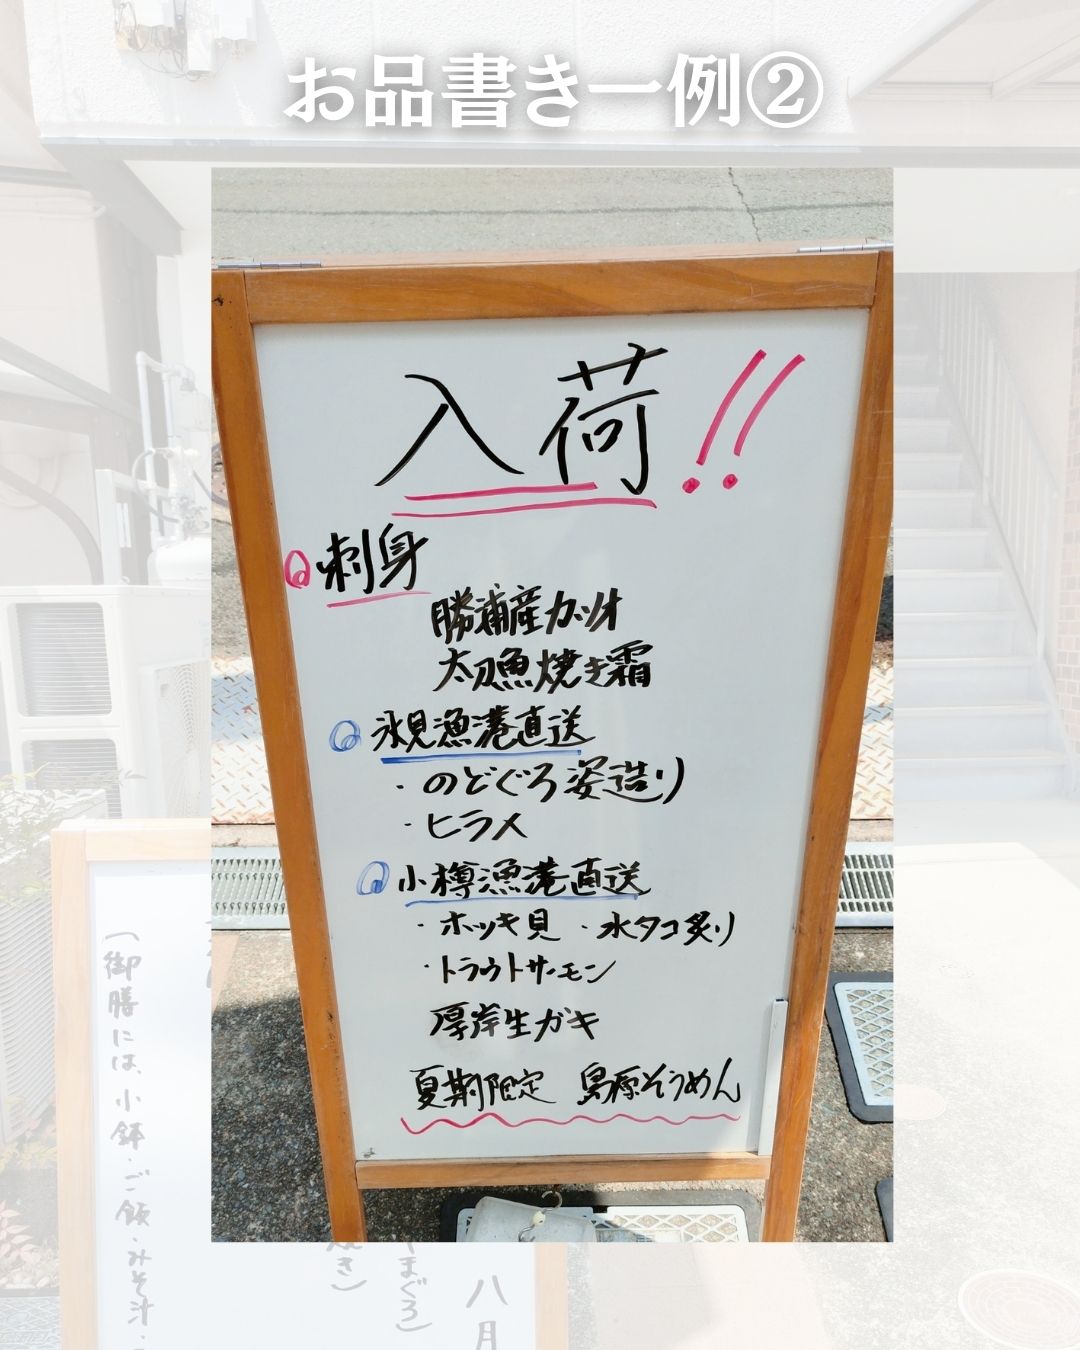 お品書き一例②
入荷!!
刺身
勝浦産カツオ
太刀魚焼き霜
氷見漁港直送
・のどぐろ姿造り
・ヒラメ
小樽漁港直送
・ホッキ貝 ・水タコ炙り
・トラウトサーモン
厚岸生ガキ
夏期限定 島原そうめん
(御膳には、小鉢・ご飯・みそ汁・
焼き)
まぐろ)
八月